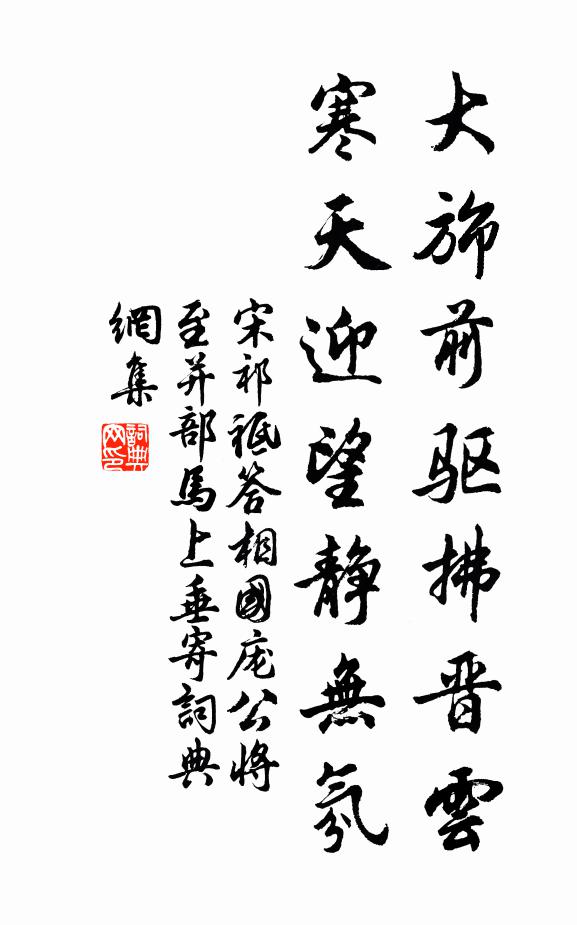 大斾前驱拂晋雲
寒天迎望静無氛
宋祁祗答相國庞公將
至并部馬上垂寄詞典
網集
詞典
网印